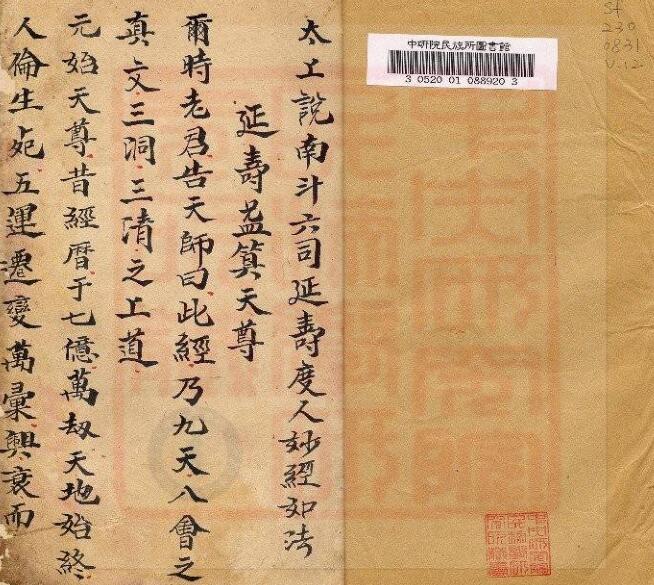 太上說南斗六司延壽度人妙經如法
延壽益算天尊
爾時老君告天師曰此經乃九天八會之
真文三洞三清之上道
元始天尊昔經曆于七億萬劫天地始終
人倫生死五運遷變萬彙興衰而
中研院民族所圖書館
3 0520 01 088920 3
230
0831
V.12